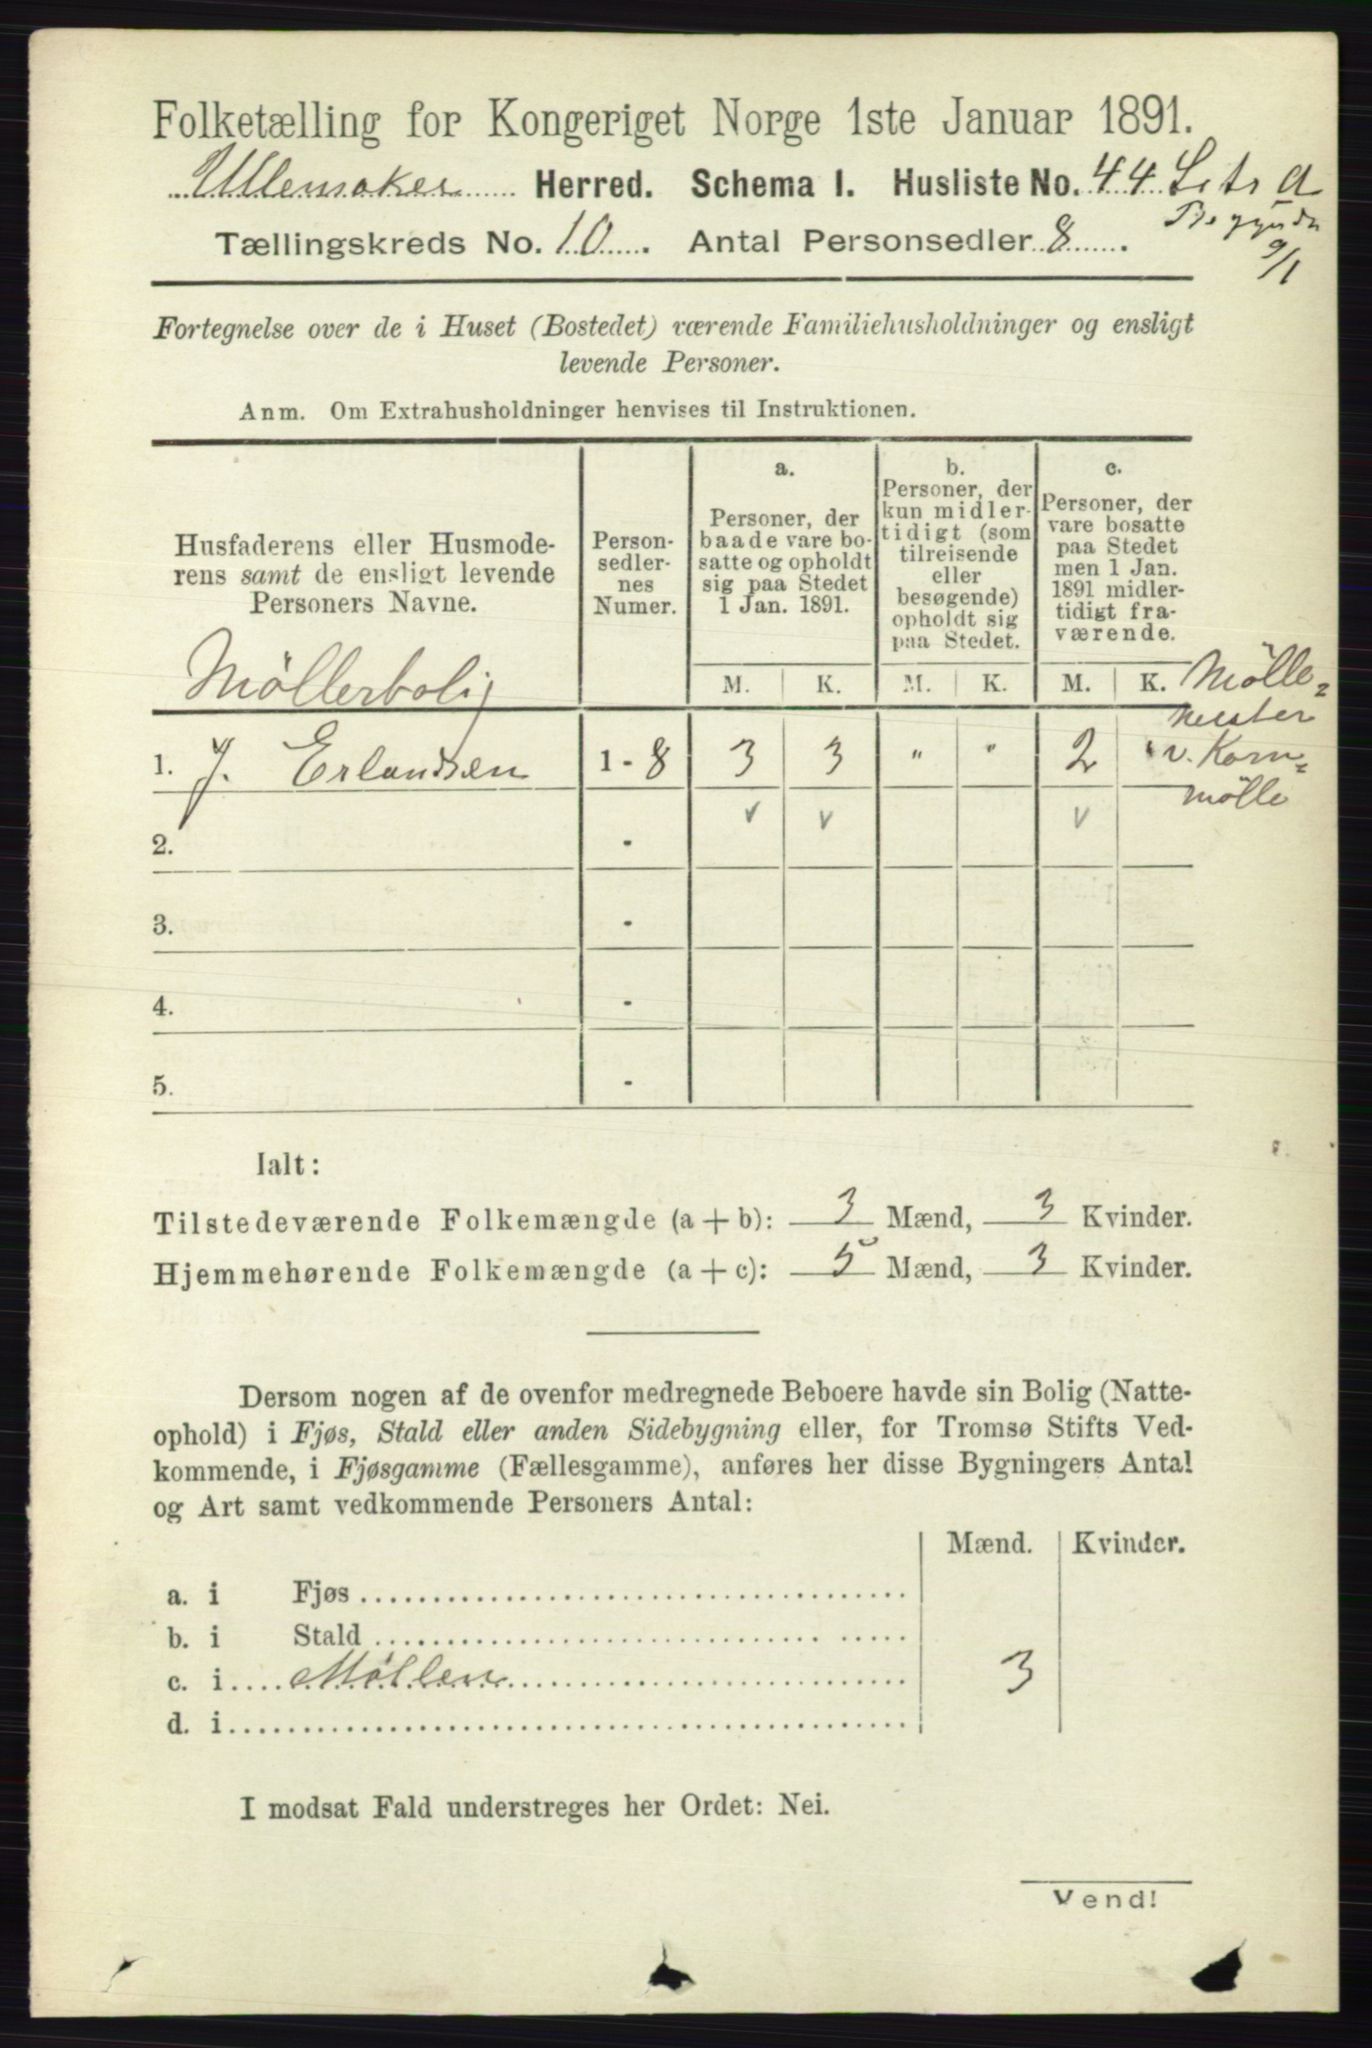 Folketælling for Kongeriget Norge 1ste Januar 1891.
Ullensaker Herred. Schema I. Husliste No. 44 Litr A
Tællingskreds No. 10. Antal Personsedler 8.
9/1
Fortegnelse over de i Huset (Bostedet) værende Familiehusholdninger og ensligt
levende Personer.
Anm. Om Extrahusholdninger henvises til Instruktionen.
Husfaderens eller Husmode-
rens samt de ensligt levende
Personers Navne.
Møllerbolig
Person-
sedler-
nes
Numer.
a.
Personer, der
baade vare bo-
satte og opholdt
sig paa Stedet
1 Jan. 1891.
b.
Personer, der
kun midler-
tidigt (som
tilreisende
eller
besøgende)
opholdt sig
paa Stedet.
c.
Personer, der
vare bosatte
paa Stedet
men 1 Jan.
1891 midler-
tidigt fra-
værende.
M. K. M. K. M. K.
Mølle=
mester
v. Korn=
mølle
1. J. Erlandsen 1 - 8 3 3 " " 2 "
v v v
2. -
3. -
4. -
5. -
Ialt:
Tilstedeværende Folkemængde (a + b): 3 Mænd, 3 Kvinder.
Hjemmehørende Folkemængde (a + c): 5 Mænd, 3 Kvinder.
Dersom nogen af de ovenfor medregnede Beboere havde sin Bolig (Natte-
ophold) i Fjøs, Stald eller anden Sidebygning eller, for Tromsø Stifts Ved-
kommende, i Fjøsgamme (Fællesgamme), anføres her disse Bygningers Antal
og Art samt vedkommende Personers Antal:
Mænd. Kvinder.
a. i Fjøs
b. i Stald
c. i Møllen 3
d. i
I modsat Fald understreges her Ordet: Nei.
Vend!